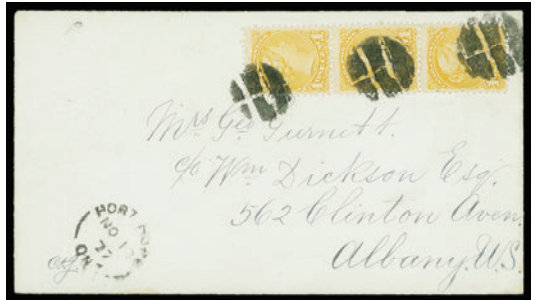 Mrs Geo Gurnett.
c/o Wm Dickson Esq.
562 Clinton Aven.
Albany. U.S.
PORT
NO 1
77
ONT